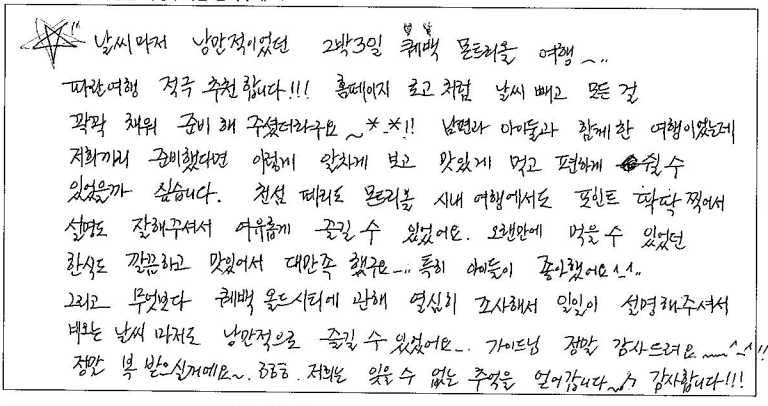 날씨마저 낭만적이었던 2박3일 퀘백 몬트리올 여행~..
파란여행 적극 추천합니다!!! 홈페이지 로고처럼 날씨 빼고 모든 걸
꽉꽉 채워 준비해 주셨더라구요~*-*!! 남편과 아이들과 함께한 여행이었는데
저희끼리 준비했다면 이렇게 알차게 보고 맛있게 먹고 편하게 쉴 수
있었을까 싶습니다. 천섬 페리도 몬트리올 시내 여행에서도 포인트 딱딱 찍어서
설명도 잘해주셔서 여유롭게 즐길 수 있었어요. 오랜만에 먹을 수 있었던
한식도 깔끔하고 맛있어서 대만족 했구요~.. 특히 아이들이 좋아했어요^-^..
그리고 무엇보다 퀘백 올드시티에 관해 열심히 조사해서 일일이 설명해주셔서
비오는 날씨마저도 낭만적으로 즐길 수 있었어요~. 가이드님 정말 감사드려요~~^-^!!
정말 복 받으실거예요~. ㅎㅎㅎ. 저희는 잊을 수 없는 추억을 얻어갑니다~ 감사합니다!!!